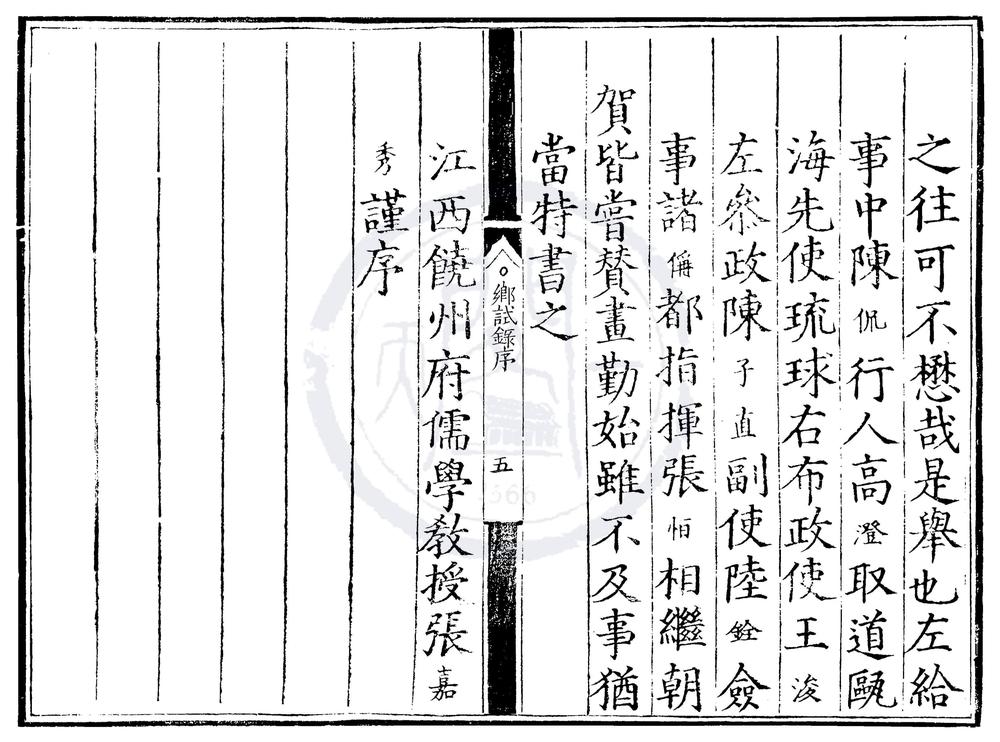 之往可不懋哉是舉也左給
事中陳侃行人高澄取道甌
海先使琉球右布政使王浚
左叅政陳子直副使陸銓僉
事諸偁都指揮張怕相繼朝
賀皆嘗贊畫勤始雖不及事猶
當特書之
鄉試錄序
五
江西饒州府儒學教授張嘉
秀謹序